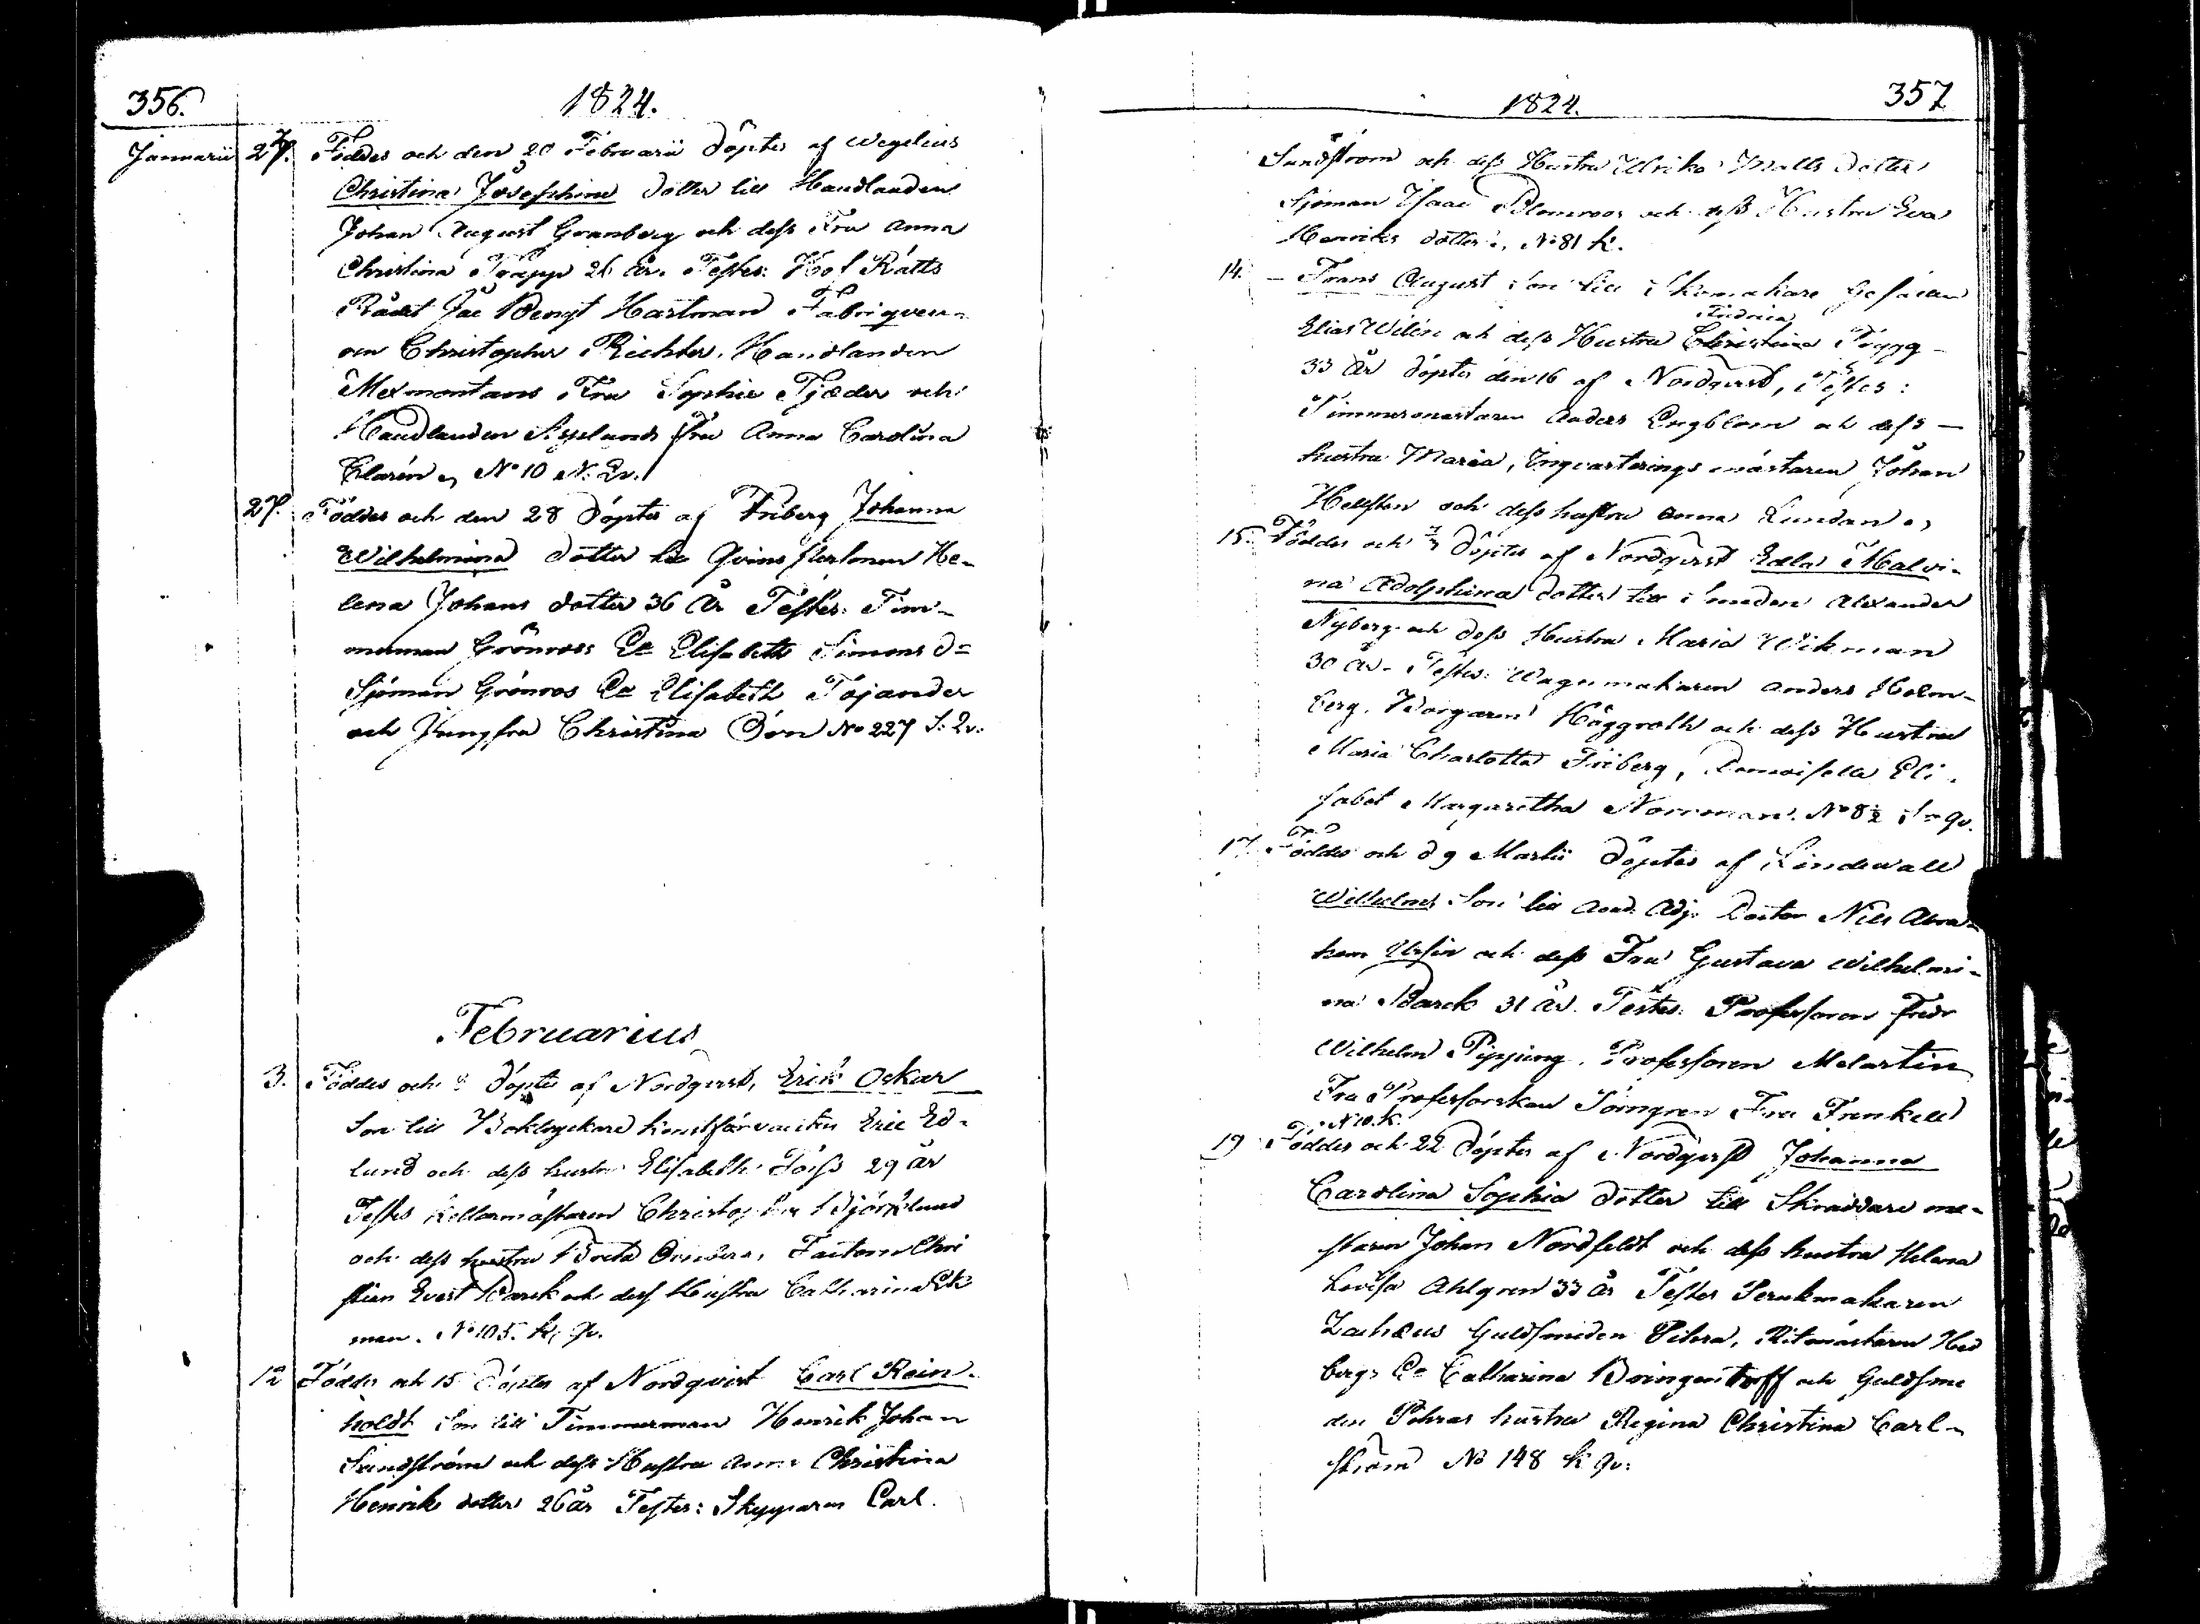 356.
1824.
Januarii 27. Föddes och den 20 Februarii döptes af Wegelius
Christina Josephina dotter till Handlanden
Johan August Granberg och dess Fru Anna
Christina Trapp 26 år. Testes: Hof Rätts
Rådet Jac Bengt Hartman Fabriqveu-
ren Christopher Richter. Handlanden
Mexmontans Fru Sophia Tjæder och
Handlanden Fru Anna Carolina
Clarén, No 10 N. Qv.
27. Föddes och den 28 döptes af Friberg Johanna
Wilhelmina dotter till Qvinspersonen He-
lena Johans dotter 36 år Testes: Tim-
merman Grönroos Ea Elisabeth Simons d=
Sjöman Grönroos Ea Elisabeth Töjander
och Jungfru Christina Öön No 227 S: Qv:
Februarius
3. Föddes och 8 döptes af Nordqvist, Erik Oskar
Son till Boktryckare konstförvanten Eric Ed-
lund och dess hustru Elisabeth 29 år
Testes Källarmästaren Christopher Björklund
och dess hustru Greta Faktorn Chri
stian Evert Barck och dess Hustru Catharina Ek
man. No 105. K, Qv.
12 Föddes och 15 döptes af Nordqvist Carl Rein-
holdt Son till Timmerman Henrik Johan
Sundström och dess Hustru Anna Christina
Henriks dotter 26 år Testes: Skepparen Carl
1824.
357
Sundström och dess Hustru Ulrika Matts dotter
Sjöman Isaac Blomroos och dess Hustru Eva
Henriks dotter, No 81 K.
14. – Frans August Son till Skomakare Gesällen
Fredrica
Elias Wilén och dess Hustru Christina Trygg –
33 år döptes den 16 af Nordqvist, Testes:
Timmermästaren Anders Engblom och dess –
hustru Maria, Inqvarterings mästaren Johan
Hellsten och dess hustru Anna Lundan
15. Föddes och döptes af Nordqvist Edla Malvi-
na Adolphina dotter till Smeden Alexander
Nyberg och dess Hustru Maria Wikman
30 år – Testes: Wagnmakaren Anders Holm-
berg, Borgaren Häggroth och dess Hustru
Maria Charlotta Friberg, Demoiselle Eli-
sabet Margaretha Norrman. No 8½ S= Qv.
17. Föddes och d 9 Martii döptes af Lindewall
Wilhelm Son till Acad. Adj. Doctor Nils Abra-
ham Ursin och dess Fru Gustava Wilhelmi-
na Barck 31 år. Testes: Professoren Fredr
Wilhelm Pipping, Professoren Melartin
Fru Professorskan Törngren Fru Frenkell
No 10. K.
19 Föddes och 22 döptes af Nordqvist Johanna
Carolina Sophia dotter till Skräddare mä-
staren Johan Nordfeldt och dess hustru Helena
Lovisa Ahlgren 33 år Testes Perukmakaren
Zachæus Guldsmeden Pehra, Ritmästaren Hed
bergs Ea Catharina och Guldsme
den Pehras hustru Regina Christina Carl-
ström No 148 K Qv: